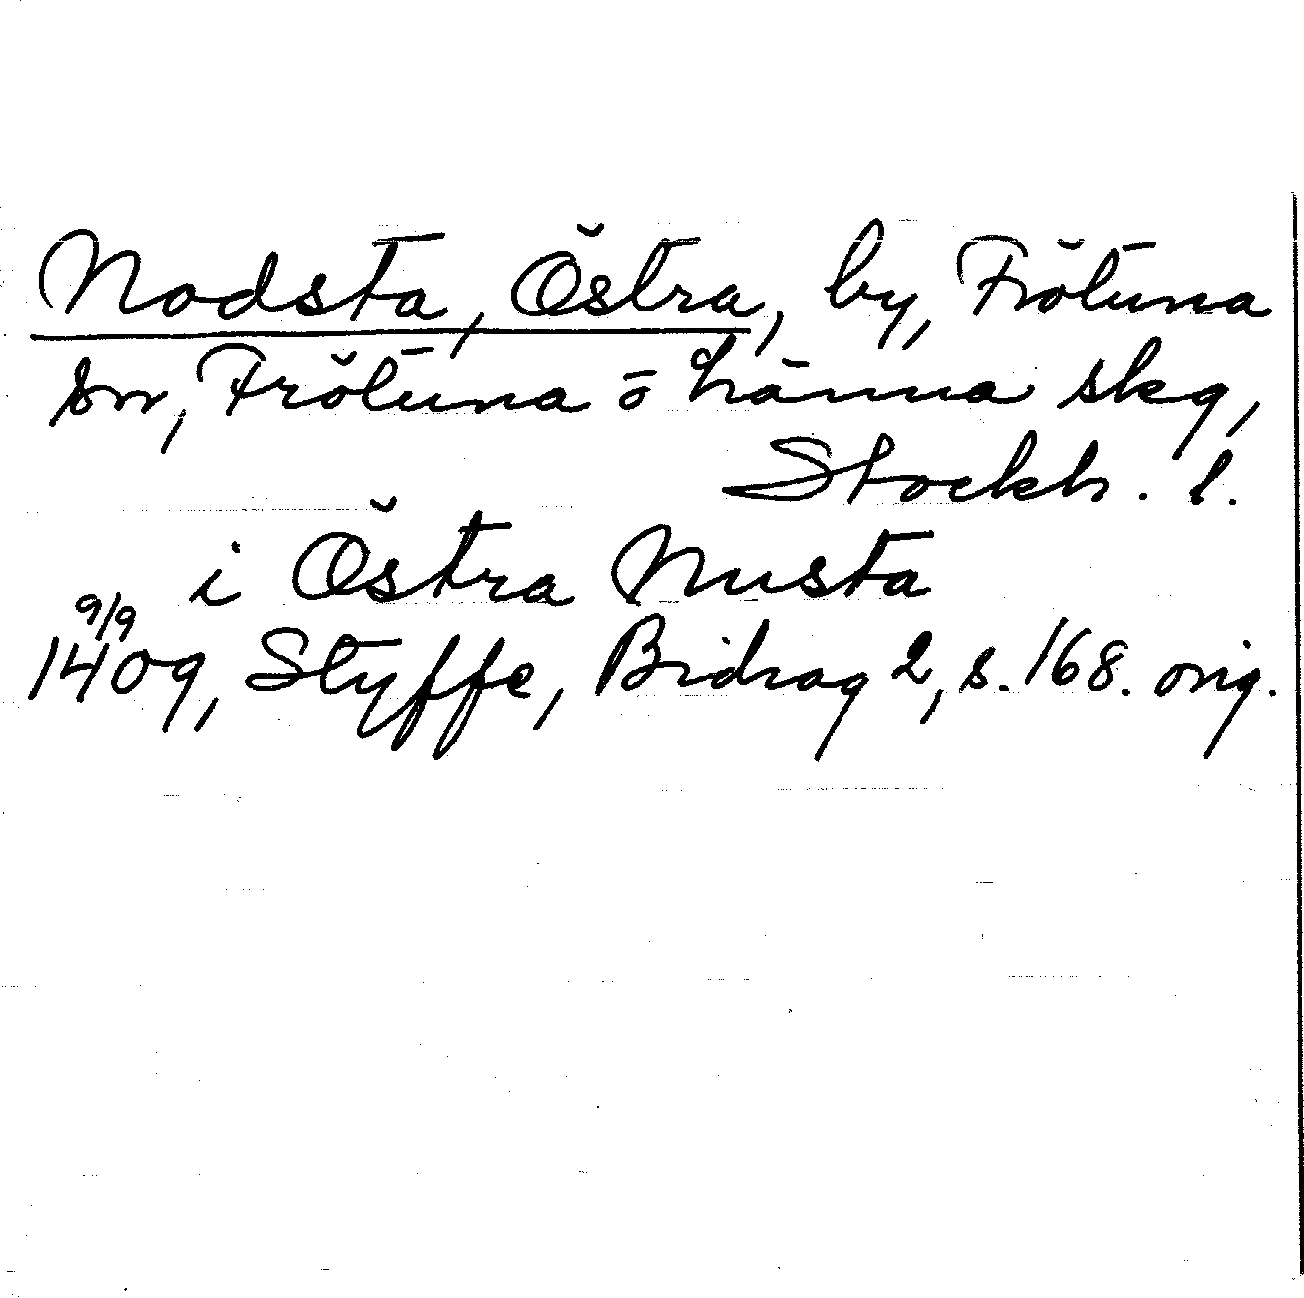 Nodsta, Östra, by, Frötuna
sn, Frötuna o Länna skg,
Stockh. l.
i Östra Nusta
9/9
1409, Styffe, Bidrag 2, s. 168. orig.